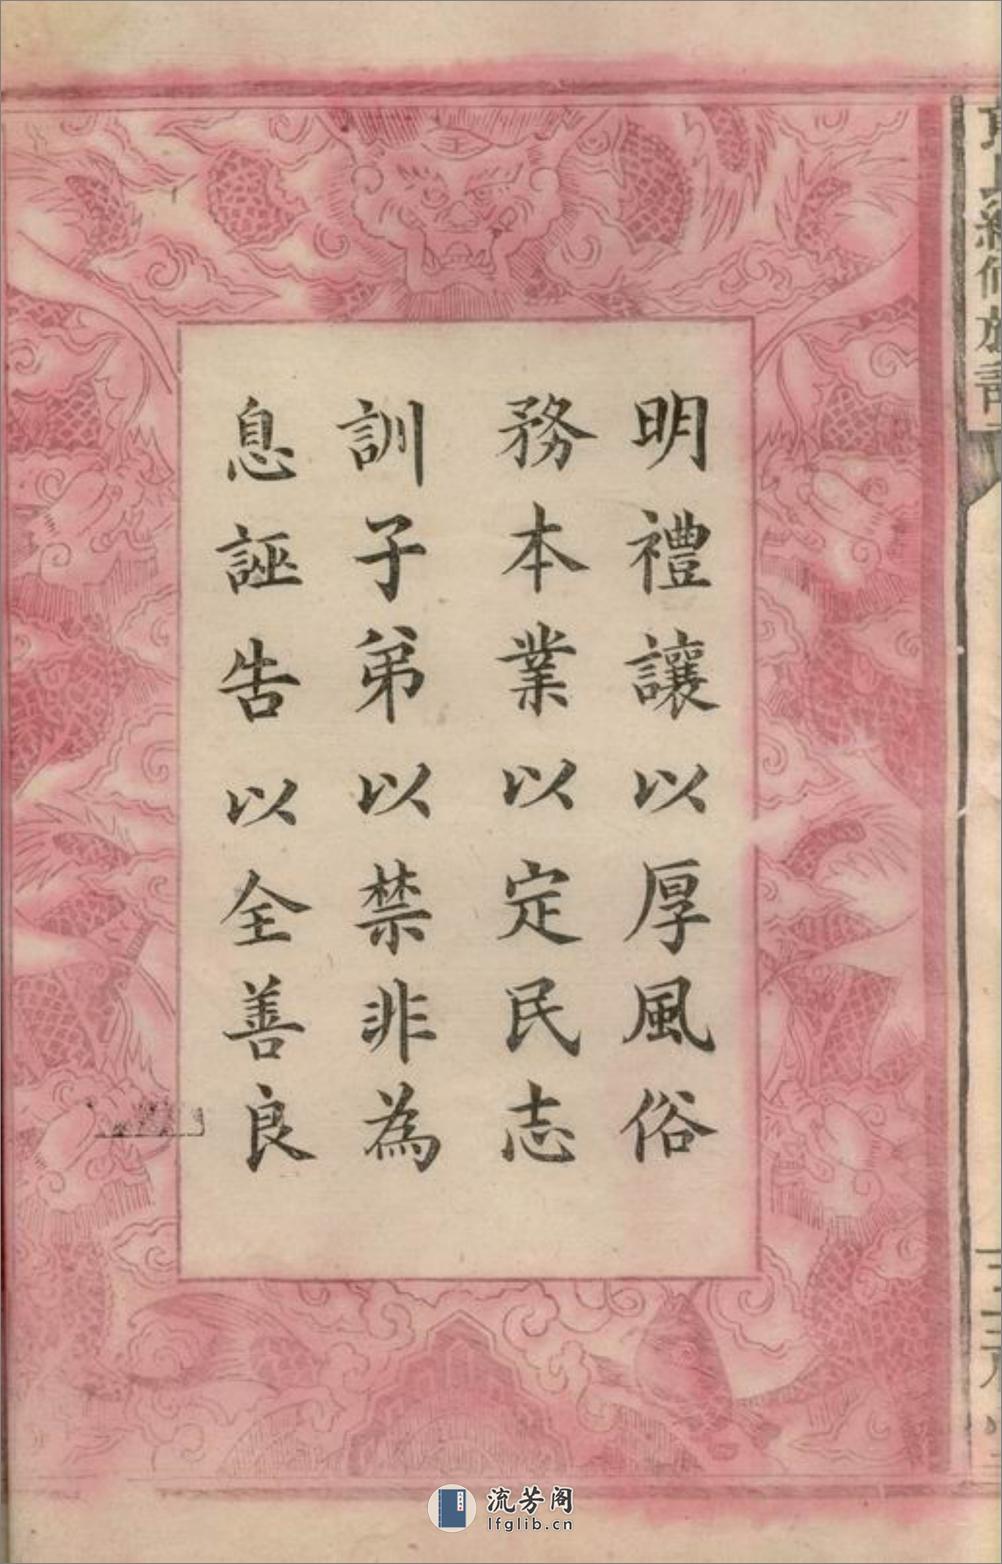 明禮讓以厚風俗
務本業以定民志
訓子弟以禁非為
息誣告以全善良
流芳阁
lfglib.cn